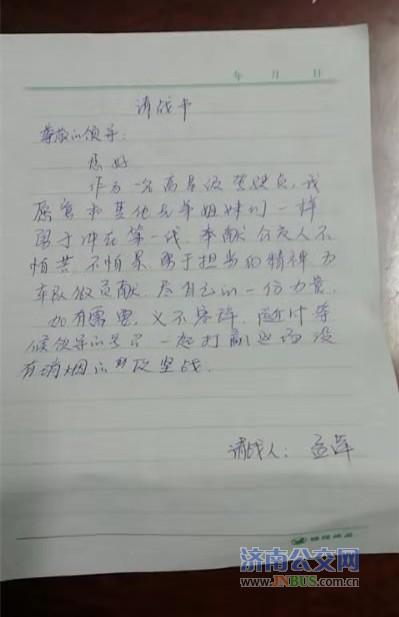 年 月 日
请战书
尊敬的领导:
您好
作为一名高星级驾驶员,我
愿意和其他兄弟姐妹们一样
勇于冲在第一线,奉献公交人不
怕苦、不怕累、勇于担当的精神,为
车队做贡献,尽自己的一份力量。
如有需要,义不容辞,随时等
候领导的号召,一起打赢这场没
有硝烟的防疫坚战.
请战人: 孟
济南公交网
WWW.JNBUS.com.cn